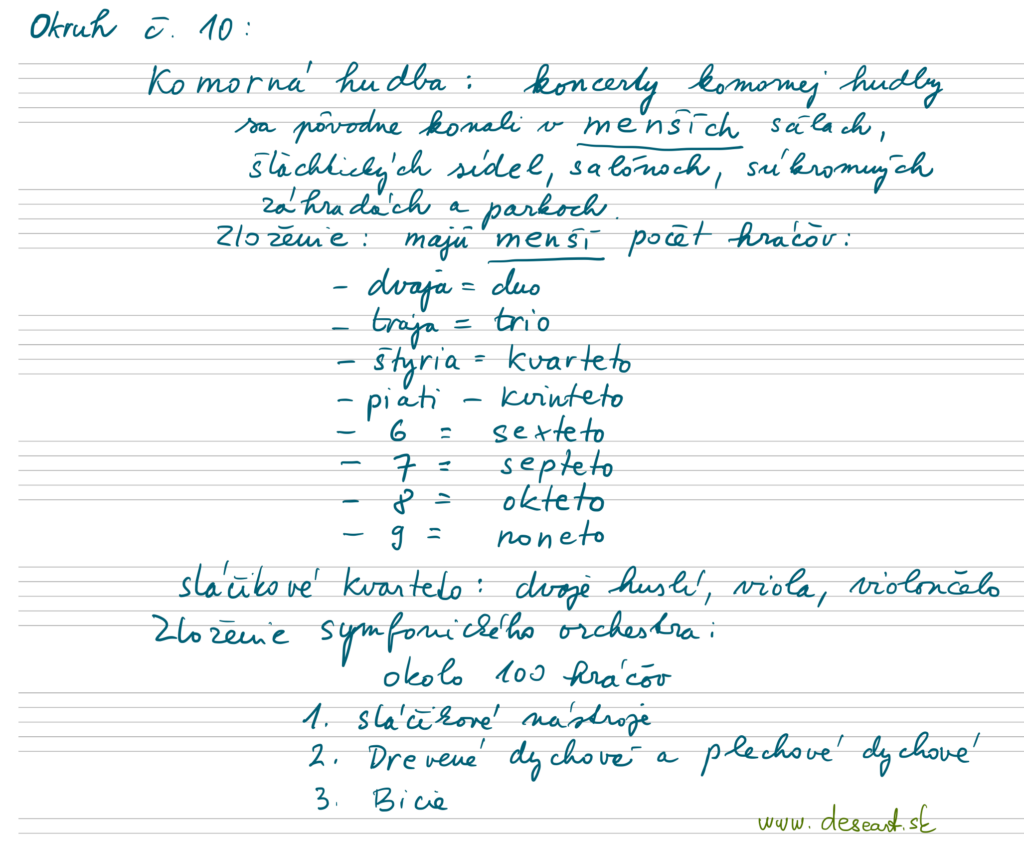 Okruh č. 10:
Komorná hudba: koncerty komornej hudby
sa pôvodne konali v menších sálach,
šľachtických sídel, salónoch, súkromných
záhradách a parkoch.
Zloženie: majú menší počet hráčov:
- dvaja = duo
- traja = trio
- štyria = kvarteto
- piati - kvinteto
- 6 = sexteto
- 7 = septeto
- 8 = okteto
- 9 = noneto
sláčikové kvarteto: dvoje huslí, viola, violončelo
Zloženie symfonického orchestra:
okolo 100 hráčov
1. sláčikové nástroje
2. Drevené dychové a plechové dychové
3. Bicie
www.deseart.sk